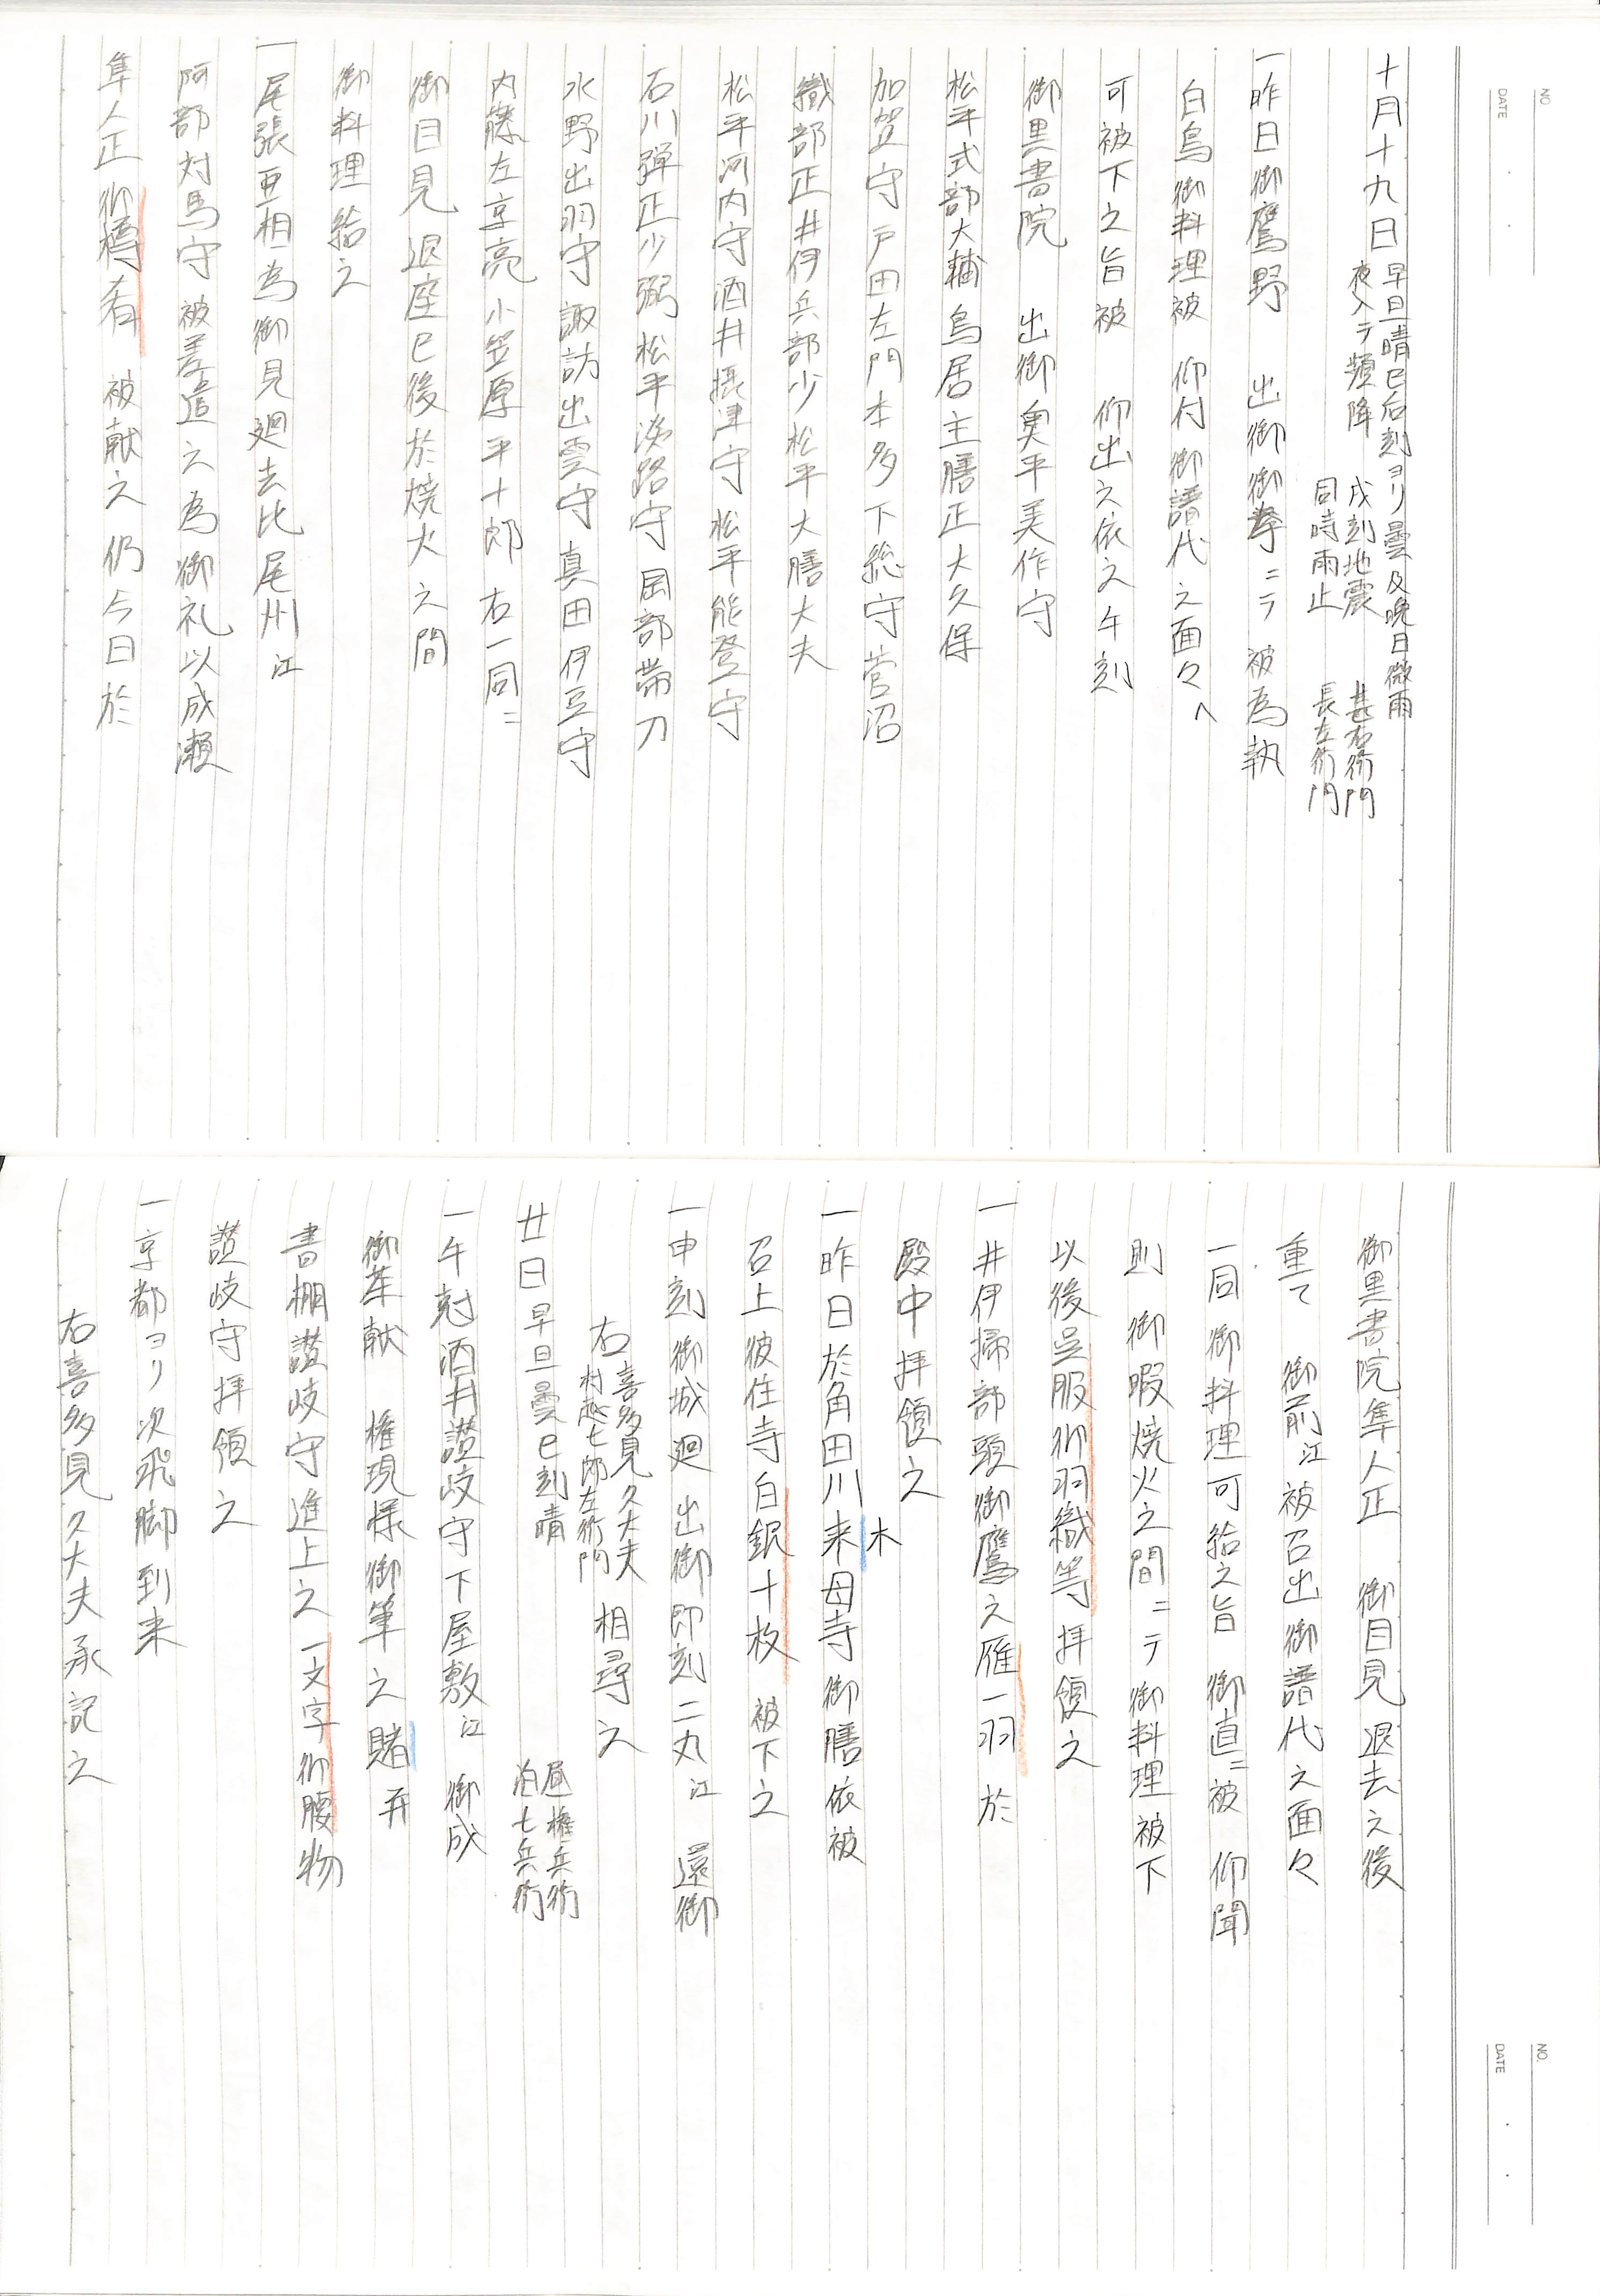 NO.
DATE
十月十九日 早旦晴巳后刻ヨリ曇及晩日微雨
夜入テ頻降 戌刻地震 甚右衛門
同時雨止 長左衛門
一昨日御鷹野 出御御拳ニテ被為執
白鳥御料理被 仰付御譜代之面々へ
可被下之旨被 仰出之依之午刻
御黒書院 出御奥平美作守
松平式部大輔鳥居主膳正大久保
加賀守戸田左門本多下総守菅沼
織部正井伊兵部少松平大膳大夫
松平河内守酒井摂津守松平能登守
石川弾正少弼松平淡路守岡部帯刀
水野出羽守諏訪出雲守真田伊豆守
内藤左京亮小笠原平十郎右一同ニ
御目見退座已後於焼火之間
御料理給之
一尾張亜相為御見廻去比尾州江
阿部対馬守被差遣之為御礼以成瀬
隼人正御樽肴 被献之仍今日於
NO.
DATE
御黒書院隼人正 御目見退去之後
重て 御前江被召出御譜代之面々
一同御料理可給之旨 御直ニ被 仰聞
則 御暇焼火之間ニテ御料理被下
以後呉服御羽織等拝領之
一井伊掃部頭御鷹之雁一羽於
殿中拝領之
木
一昨日於角田川来母寺御膳依被
召上彼住寺白銀十枚被下之
一申刻御城廻出御即刻二丸江 還御
右 喜多見久大夫
村越七郎左衛門 相尋之
廿日早旦曇巳刻晴 昼権兵衛
泊七兵衛
一午刻酒井讃岐守下屋敷江 御成
御茶献 権現様御筆之賭并
書棚讃岐守進上之一文字御腰物
讃岐守拝領之
一京都ヨリ次飛脚到来
右喜多見久大夫承記之